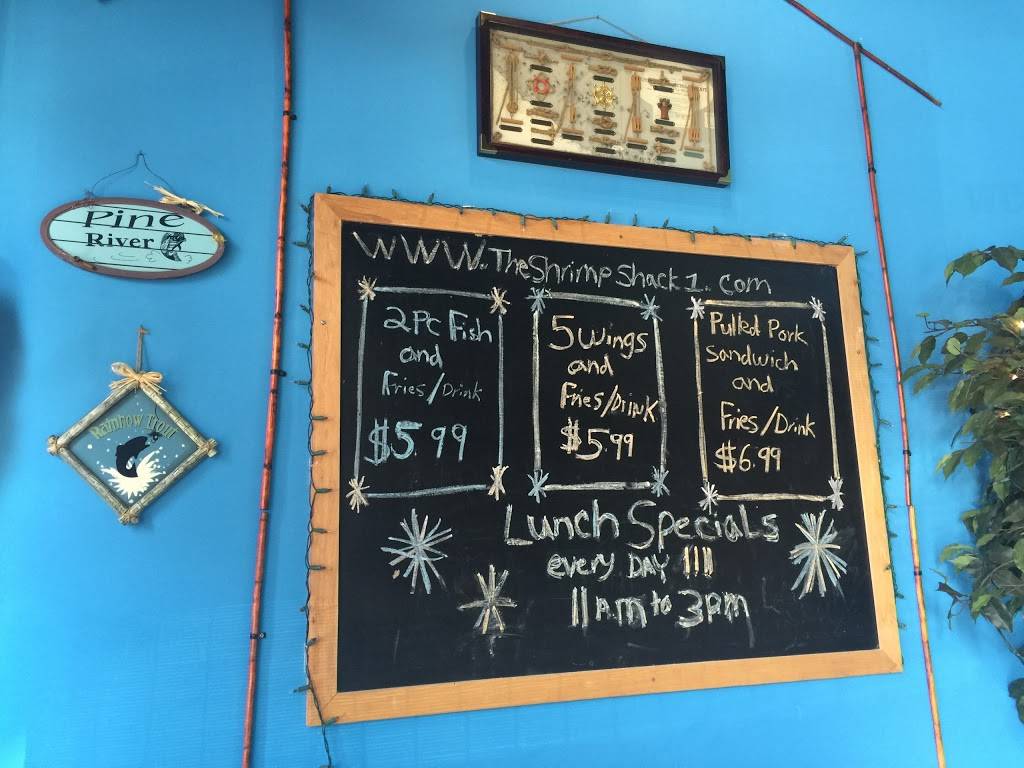 Pine
River
Rainbow Trout
www.TheShrimpShack1.com
2Pc Fish
and
Fries/Drink
$5.99
5 wings
and
Fries/Drink
$5.99
Pulled Pork
Sandwich
and
Fries/Drink
$6.99
Lunch Specials
every DAY !!!!
11am to 3pm